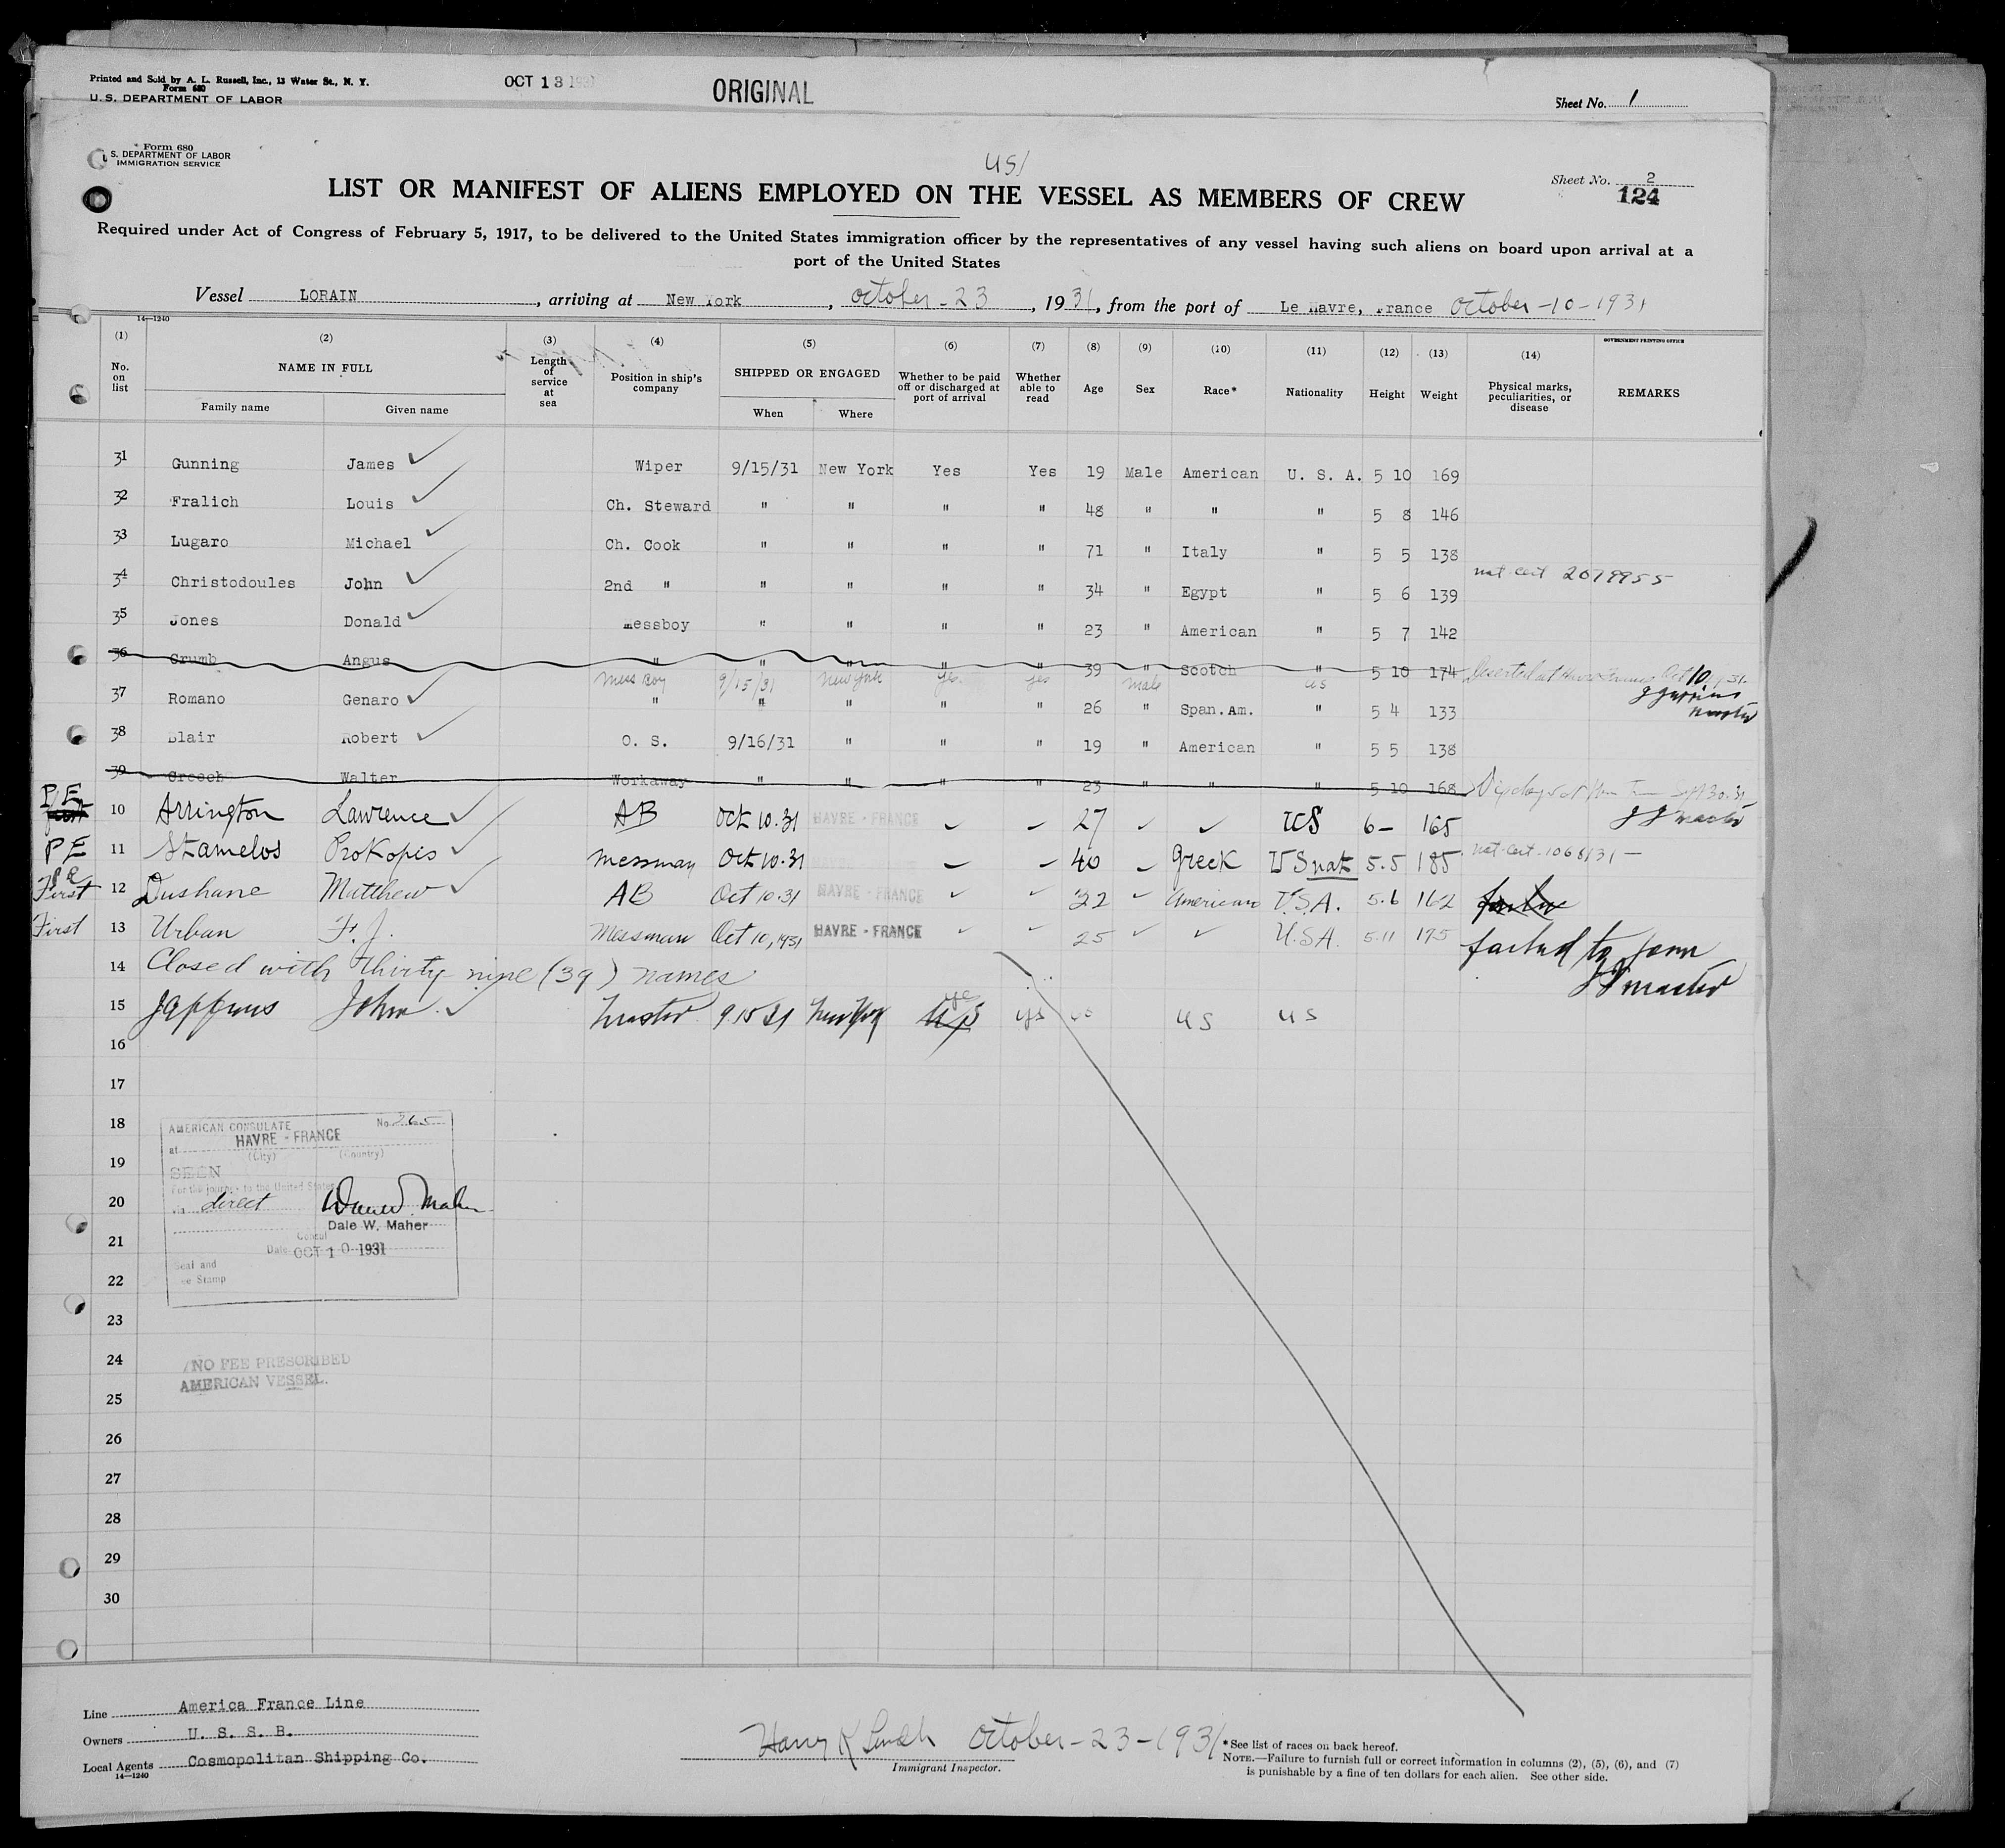 Printed and Sold by A. L. Russell, Inc., 13 Water St., N. Y.
Form 680
U. S. DEPARTMENT OF LABOR
OCT 13 1931
ORIGINAL
Sheet No. 1
Form 680
S. DEPARTMENT OF LABOR
IMMIGRATION SERVICE
US/
Sheet No. 2
124
LIST OR MANIFEST OF ALIENS EMPLOYED ON THE VESSEL AS MEMBERS OF CREW
Required under Act of Congress of February 5, 1917, to be delivered to the United States immigration officer by the representatives of any vessel having such aliens on board upon arrival at a
port of the United States
Vessel LORAIN, arriving at New York, October - 23, 1931, from the port of Le Havre, France October - 10 - 1931
14—1240
GOVERNMENT PRINTING OFFICE
(1) (2) (3) (4) (5) (6) (7) (8) (9) (10) (11) (12) (13) (14)
No. on list NAME IN FULL Length of service at sea Position in ship's company SHIPPED OR ENGAGED Whether to be paid off or discharged at port of arrival Whether able to read Age Sex Race* Nationality Height Weight Physical marks, peculiarities, or disease REMARKS
Family name Given name When Where
31 Gunning James ✓ Wiper 9/15/31 New York Yes Yes 19 Male American U. S. A. 5 10 169
32 Fralich Louis ✓ Ch. Steward " " " " 48 " " " 5 8 146
33 Lugaro Michael ✓ Ch. Cook " " " " 71 " Italy " 5 5 138
34 Christodoules John ✓ 2nd " " " " " 34 " Egypt " 5 6 139 nat cert 2079955
35 Jones Donald ✓ messboy " " " " 23 " American " 5 7 142
36 Crumb Angus " " " " " 39 " Scotch " 5 10 174 Deserted at Havre France Oct 10 1931
Mess Boy 9/15/31 New York yes yes male US
37 Romano Genaro ✓ " " " " " 26 " Span.Am. " 5 4 133 master
38 Blair Robert ✓ O. S. 9/16/31 " " " 19 " American " 5 5 138
39 Creech Walter Workaway " " " " 23 " " " 5 10 168
master
PE 10 Arrington Lawrence ✓ AB Oct 10.31 HAVRE - FRANCE ✓ ✓ 27 ✓ ✓ US 6 – 165
PE 11 Stamelos Prokopis ✓ messman Oct 10.31 ✓ ✓ 40 ✓ Greek US nat 5.5 185 nat cert. 1068131 —
First 12 Dushane Matthew ✓ AB Oct 10.31 HAVRE - FRANCE ✓ ✓ 22 ✓ American U.S.A. 5.6 162
First 13 Urban F. J. Messman Oct 10, 1931 HAVRE - FRANCE ✓ ✓ 25 ✓ ✓ U.S.A. 5.11 195 failed to join
14 Closed with thirty-nine (39) names
master
15 John ✓ Master 9.15 31 New York yes yes US US
16
17
18
19
20
21
22
23
24
25
26
27
28
29
30
AMERICAN CONSULATE No. 265
at HAVRE - FRANCE
(City) (Country)
SEEN
For the journey to the United States
via direct
Dale W. Maher
Consul
Date OCT 10 1931
Seal and
Fee Stamp
NO FEE PRESCRIBED
AMERICAN VESSEL.
Line America France Line
Owners U. S. S. B.
Local Agents Cosmopolitan Shipping Co.
14—1240
Harry K October - 23 - 1931
Immigrant Inspector.
*See list of races on back hereof.
NOTE.—Failure to furnish full or correct information in columns (2), (5), (6), and (7)
is punishable by a fine of ten dollars for each alien. See other side.